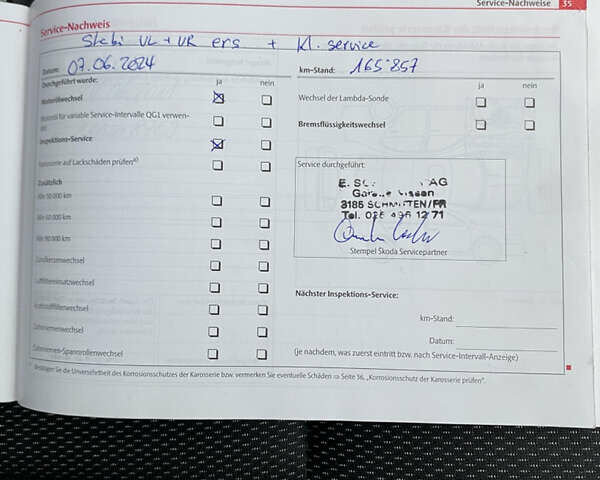 Service-Nachweise 35
Service-Nachweis
Stabi VL + VR ers + Kl. service
Datum: 07.06.2024
km-Stand: 165'857
Durchgeführt wurde: ja nein
ja nein
Motorölwechsel
Wechsel der Lambda-Sonde
Motoröl für variable Service-Intervalle QG1 verwen-
den
Bremsflüssigkeitswechsel
Inspektions-Service
Karosserie auf Lackschäden prüfen a)
Service durchgeführt:
Zusätzlich
E. AG
Alle 30 000 km
3185 SCHMITTEN/FR
Alle 60 000 km
Tol. 026 496 12 71
Alle 90 000 km
Stempel Škoda Servicepartner
Zündkerzenwechsel
Luftfiltereinsatzwechsel
Nächster Inspektions-Service:
Kraftstofffilterwechsel
km-Stand:
Zahnriemenwechsel
Datum:
Zahnriemen-Spannrollenwechsel
(je nachdem, was zuerst eintritt bzw. nach Service-Intervall-Anzeige)
a) Bestätigen Sie die Unversehrtheit des Korrosionsschutzes der Karosserie bzw. vermerken Sie eventuelle Schäden ⇒ Seite 36, „Korrosionsschutz der Karosserie prüfen“.